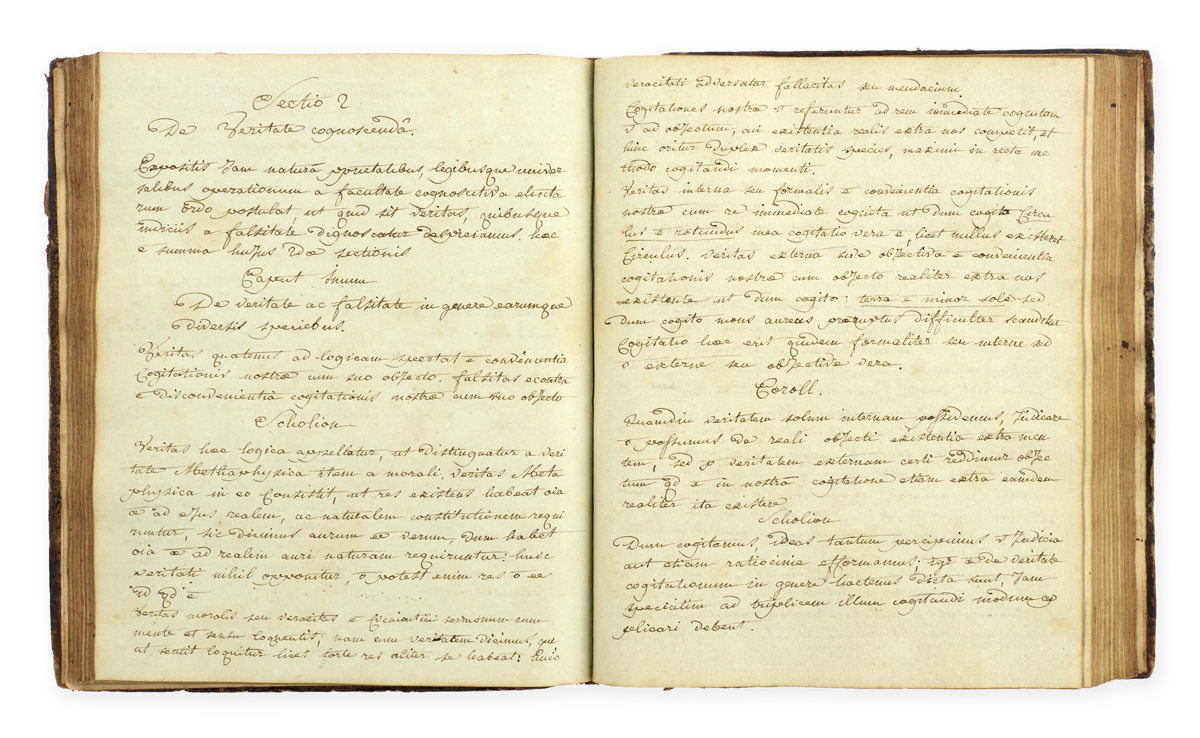 Sectio 2
De Veritate cognoscendâ.
Expositis Jam naturâ proprietatibus, legibusque univer
salibus operationum a facultate cognoscitiva elicita
rum ordo postulat, ut quid sit veritas, quibusque
indiciis a falsitate dignoscatur despiciamus. hœc
e summa hujus 2dœ sectionis
Caput
De veritate ac falsitate in genere earumque
diversis speciebus.
Veritas quatenus ad logicam spectat e convenientia
Cogitationis nostrœ cum suo objecto. falsitas econtra
e disconvenientia cogitationis nostrœ cum suo objecto
Scholion
Veritas hœc logica appellatur, ut distinguatur a veri
tate Methaphysica item a morali. veritas Meta
physica in eo Consistit, ut res existens habeat oia
œ ad ejus realem, ac naturalem constitutionem requi
runtur, sic dicimus aurum ee verum, dum habet
oia œ ad realem auri naturam requiruntur: huic
veritati nihil opponitur, o potest enim res o ee
id qd e
Veritas moralis seu veracitas e sermonum cum
mente et sensu loquentis, nam eum veritatem dicimus, qui
ut sentit loquitur licet forte res aliter se habeat: huic
veracitati adversatur fallacitas seu mendacium.
Cogitationes nostrœ referuntur ad rem immediate cognitam
ad objectum, cui existentia realis extra nos competit, et
hinc oritur duplex veritatis species, maximi in recta me
thodo cogitandi momenti.
Veritas interna seu formalis e convenientia cogitationis
nostrœ cum re immediate cognita ut dum cogito Circu
lus e rotundus mea cogitatio vera e, licet nullus existeret
Circulus. veritas externa sive objectiva e convenientia
cogitationis nostrœ cum objecto realiter extra nos
existente ut dum cogito: terra e minor sole sed
dum cogito mons aureus difficulter scanditur
Cogitatio hœc erit quidem formaliter seu interne sed
o externe seu objective vera.
Coroll.
Quamdiu veritatem solum internam possidemus, Judicare
o possumus de reali objecti existentia extra men
tem, sed p veritatem externam certi reddimur objec
tum qd e in nostrâ cogitatione etiam extra eamdem
realiter ita existere
Scholion
Dum cogitamus, ideas tantum percipimus Judicia
aut etiam ratiocinia efformamus; igr œ de veritate
cogitationum in genere hactenus dicta sunt, Jam
speciatim ad triplicem illum cogitandi modum ap
plicari debent.